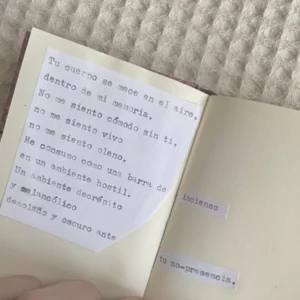 Tu cuerpo se mece en el aire,
dentro de mi memoria.
No me siento cómodo sin ti,
no me siento vivo
no me siento pleno.
Me consumo como una barra de
incienso
en un ambiente hostil.
Un ambiente decrépito
y melancólico
desolado y oscuro ante
tu no-presencia.